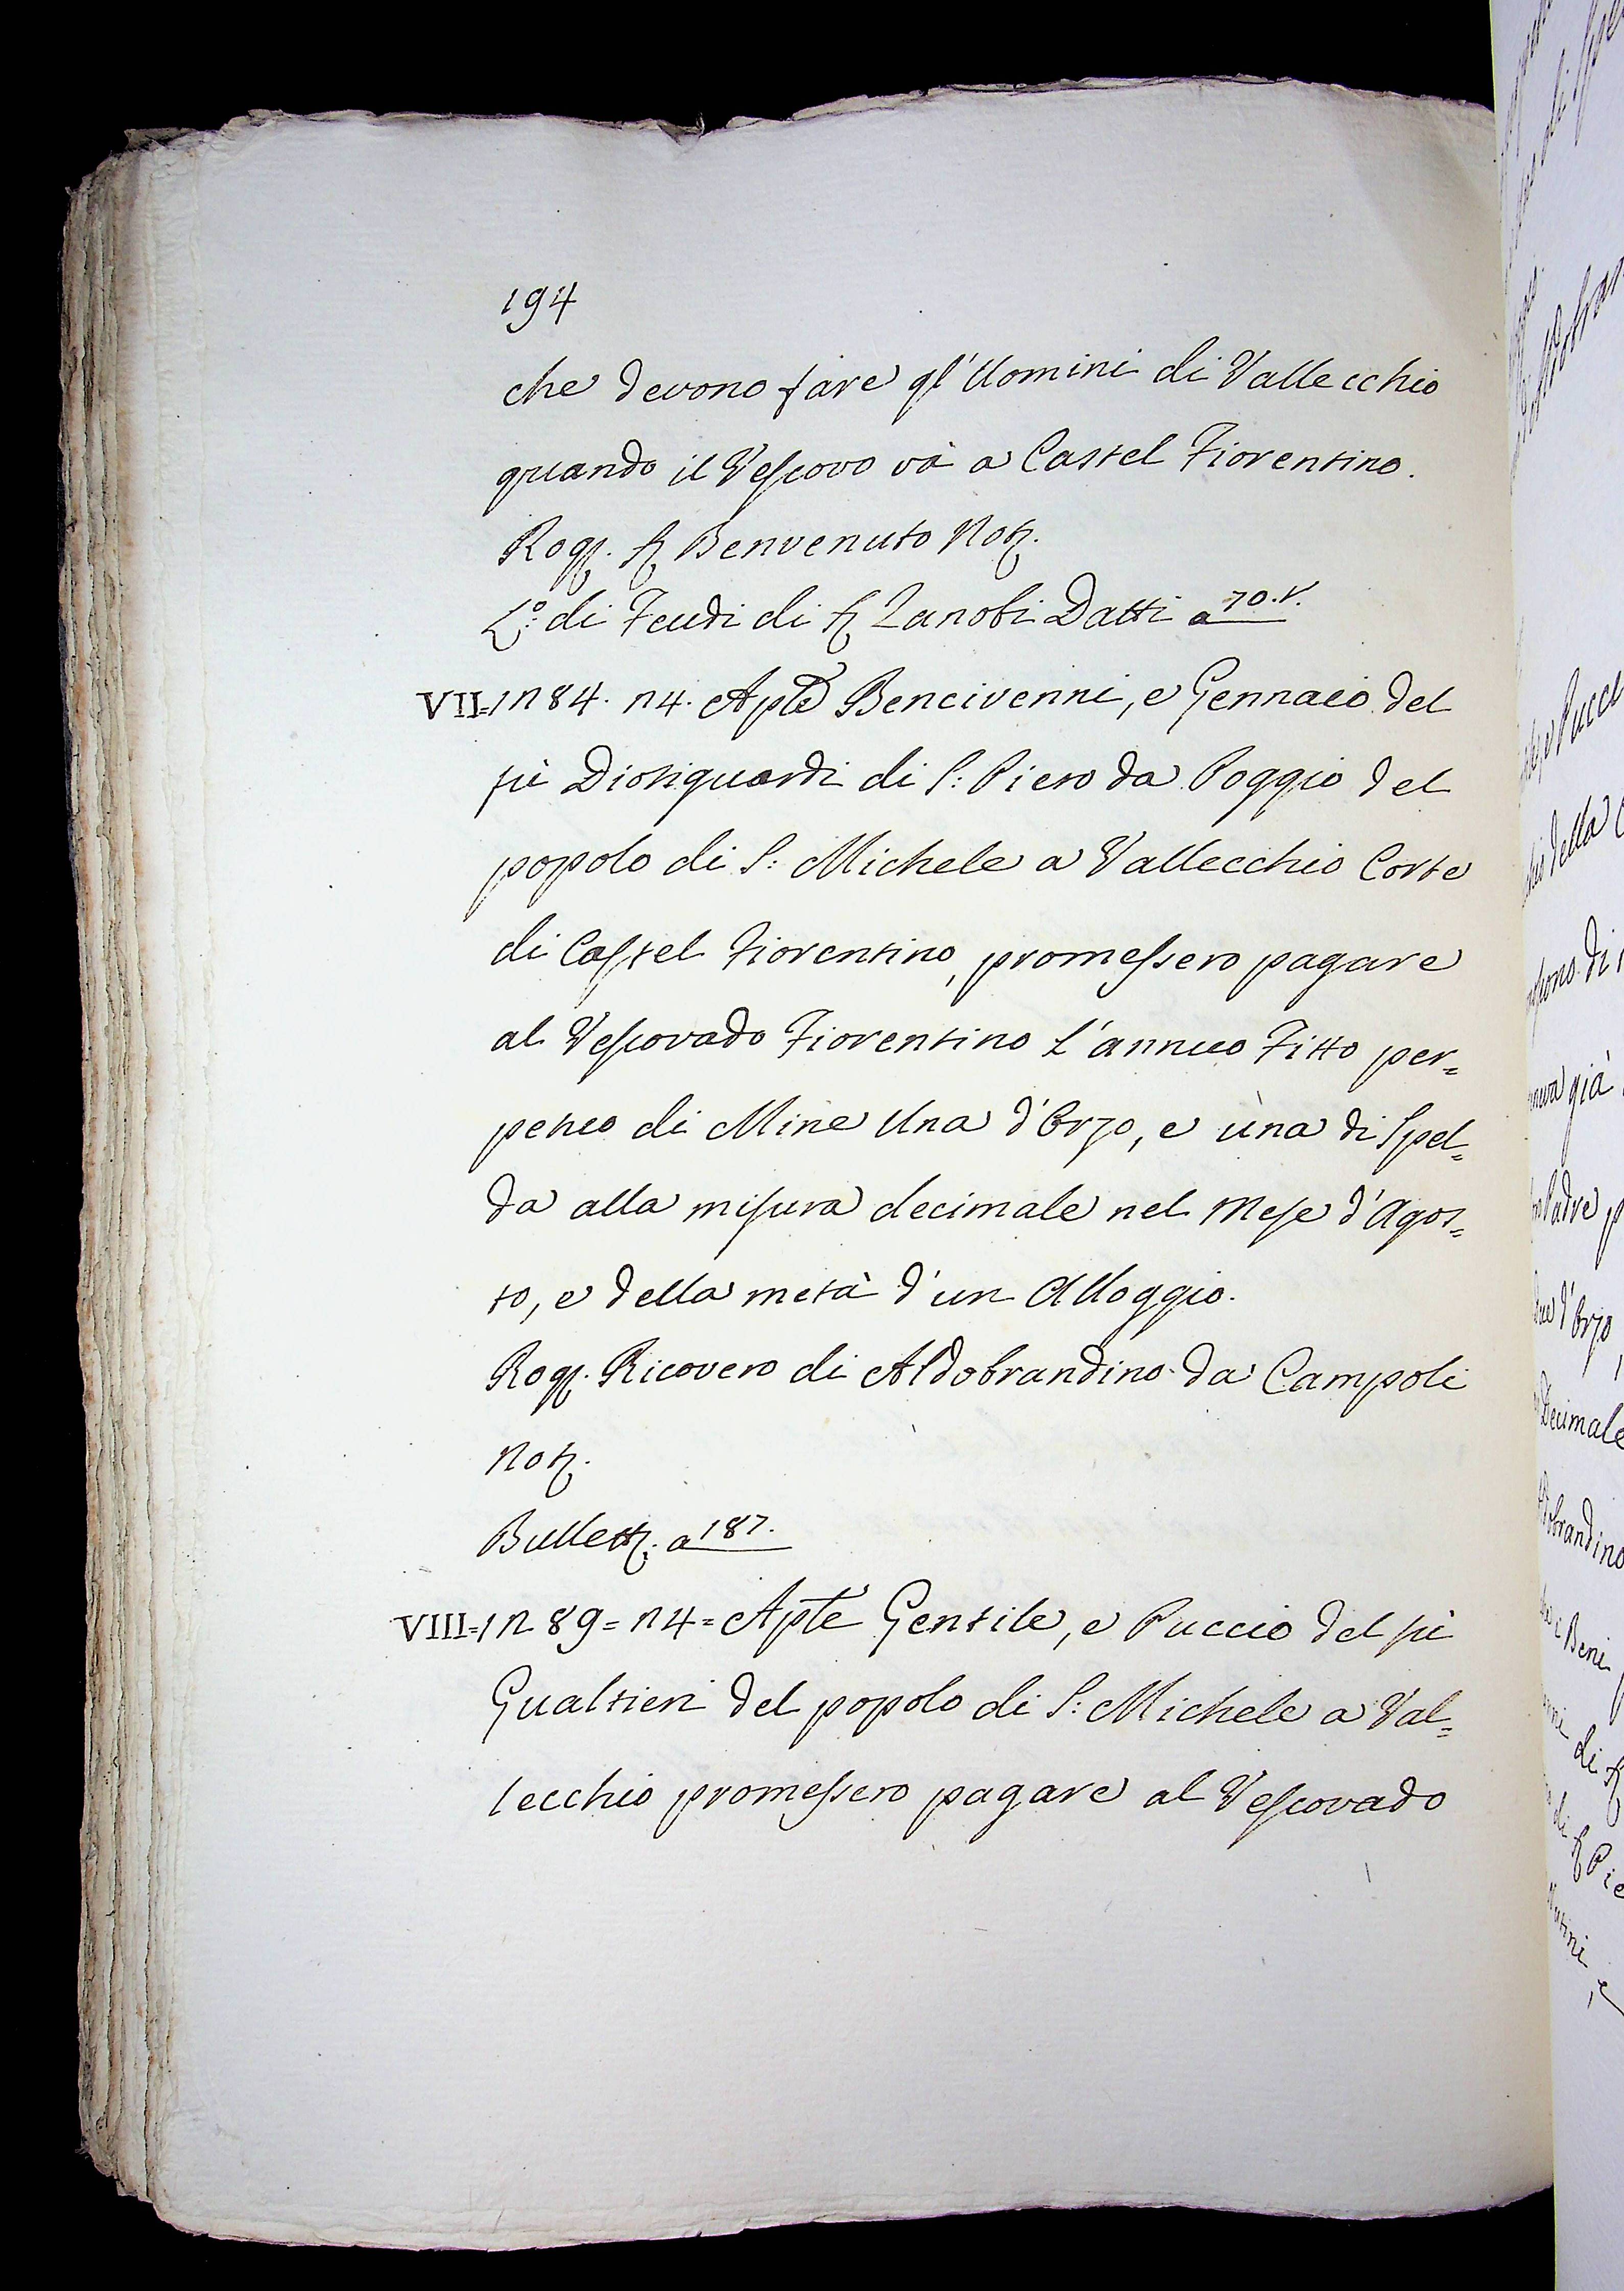 194
che devono fare gl'Uomini di Vallecchio
quando il Vescovo và a Castel Fiorentino.
Rogg. Sr Benvenuto Nott.
Lo: di Feudi di Sr Zanobi Datti a 70.v.
VII=1284. 14. Aple Bencivenni, e Gennaio del
fù Diotiguardi di S: Piero da Poggio del
popolo di S: Michele a Vallecchio Corte
di Castel Fiorentino, promessero pagare
al Vescovado Fiorentino L'annuo Fitto per=
petuo di Mine Una d'Orzo, e una di Spel=
da alla misura decimale nel Mese d'Agos=
to, e della metà d'un Alloggio.
Rogg. Ricovero di Aldobrandino da Campoli
Nott.
Bullett. a 187.
VIII=1289=14=Aple Gentile, e Puccio del fù
Gualtieri del popolo di S: Michele a Val=
lecchio promessero pagare al Vescovado